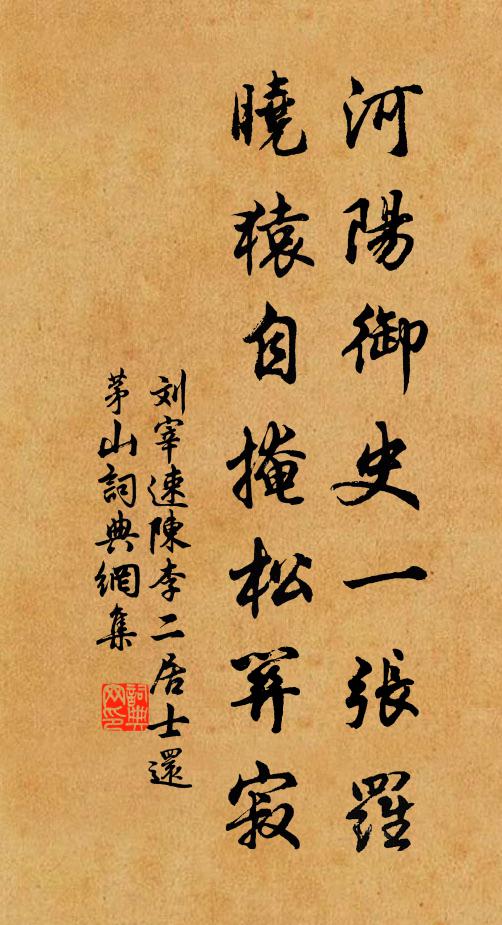 河陽御史一張羅
曉猿自掩松關寂
刘宰速陳李二居士還
茅山詞典網集
詞典
网印